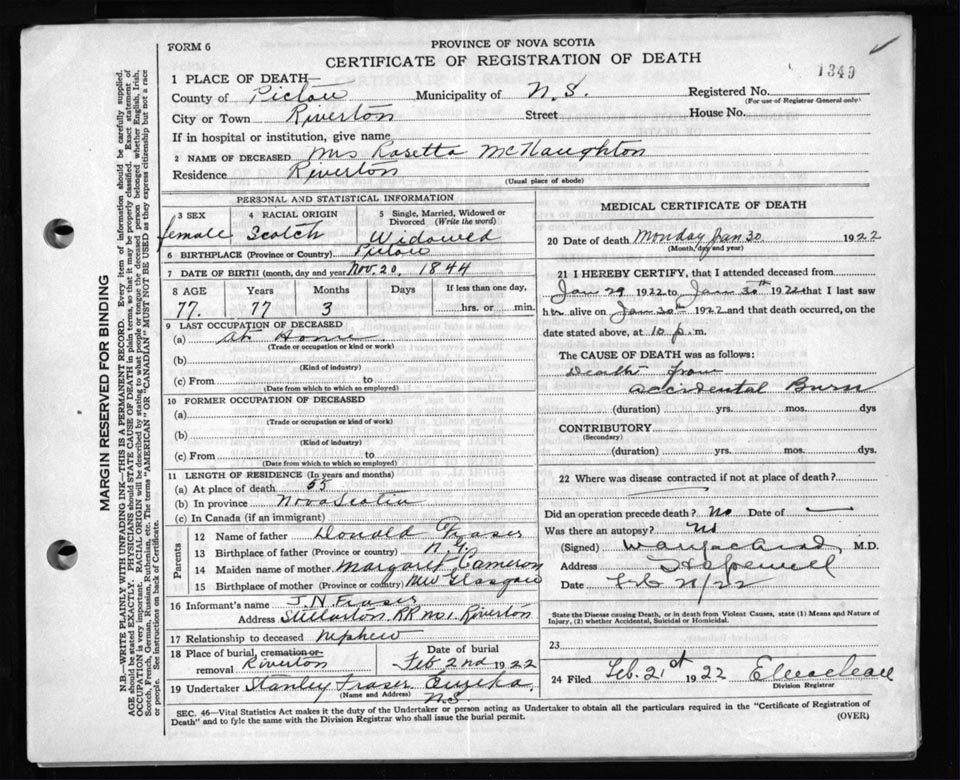 FORM 6
PROVINCE OF NOVA SCOTIA
CERTIFICATE OF REGISTRATION OF DEATH
1349
1 PLACE OF DEATH—
County of Pictou Municipality of N.S. Registered No.
(For use of Registrar General only)
City or Town Riverton Street House No.
If in hospital or institution, give name
2 NAME OF DECEASED Mrs Rosetta McNaughton
Residence Riverton
(Usual place of abode)
PERSONAL AND STATISTICAL INFORMATION
3 SEX 4 RACIAL ORIGIN 5 Single, Married, Widowed or Divorced (Write the word)
female Scotch Widowed
6 BIRTHPLACE (Province or Country) Pictou
7 DATE OF BIRTH (month, day and year) Nov. 20, 1844
8 AGE Years Months Days If less than one day,
77. 77 3 hrs. or min.
9 LAST OCCUPATION OF DECEASED
(a) at Home
(Trade or occupation or kind or work)
(b)
(Kind of industry)
(c) From to
(Date from which to which so employed)
10 FORMER OCCUPATION OF DECEASED
(a)
(Trade or occupation or kind of work)
(b)
(Kind of industry)
(c) From to
(Date from which to which so employed)
11 LENGTH OF RESIDENCE (In years and months)
(a) At place of death 55
(b) In province Nova Scotia
(c) In Canada (if an immigrant)
Parents
12 Name of father Donald Fraser
13 Birthplace of father (Province or country) N.G.
14 Maiden name of mother Margaret Cameron
15 Birthplace of mother (Province or country) New Glasgow
16 Informant's name J. N. Fraser
Address Stellarton RR No1. Riverton
17 Relationship to deceased nephew
18 Place of burial, cremation or removal Riverton
Date of burial Feb 2nd 1922
19 Undertaker Stanley Fraser Eureka N.S.
(Name and Address)
MEDICAL CERTIFICATE OF DEATH
20 Date of death Monday Jan 30 1922
(Month, day and year)
21 I HEREBY CERTIFY, that I attended deceased from
Jan 29 1922 to Jan 30th 1922 that I last saw
her alive on Jan 30th 1922 and that death occurred, on the
date stated above, at 10 p.m.
The CAUSE OF DEATH was as follows:
Death from
accidental Burn
(duration) yrs. mos. dys
CONTRIBUTORY
(Secondary)
(duration) yrs. mos. dys.
22 Where was disease contracted if not at place of death?
Did an operation precede death? No Date of —
Was there an autopsy? No
(Signed) M.D.
Address Hopewell
Date Feb 21/22
State the Disease causing Death, or in death from Violent Causes, state (1) Means and Nature of
Injury, (2) whether Accidental, Suicidal or Homicidal.
23
24 Filed Feb. 21st 1922
Division Registrar
SEC. 46—Vital Statistics Act makes it the duty of the Undertaker or person acting as Undertaker to obtain all the particulars required in the "Certificate of Registration of
Death" and to fyle the same with the Division Registrar who shall issue the burial permit.
(OVER)
MARGIN RESERVED FOR BINDING
N.B.—WRITE PLAINLY WITH UNFADING INK—THIS IS A PERMANENT RECORD. Every item of information should be carefully supplied.
AGE should be stated EXACTLY. PHYSICIANS should STATE CAUSE OF DEATH in plain terms, so that it may be properly classified. Exact statement of
OCCUPATION is very important. RACIAL ORIGIN will be described by stating to what people or tongue the deceased person belonged whether English, Irish,
Scotch, French, German, Russian, Ruthenian, etc. The terms "AMERICAN" OR "CANADIAN" MUST NOT BE USED as they express citizenship but not a race
or people. See instructions on back of Certificate.